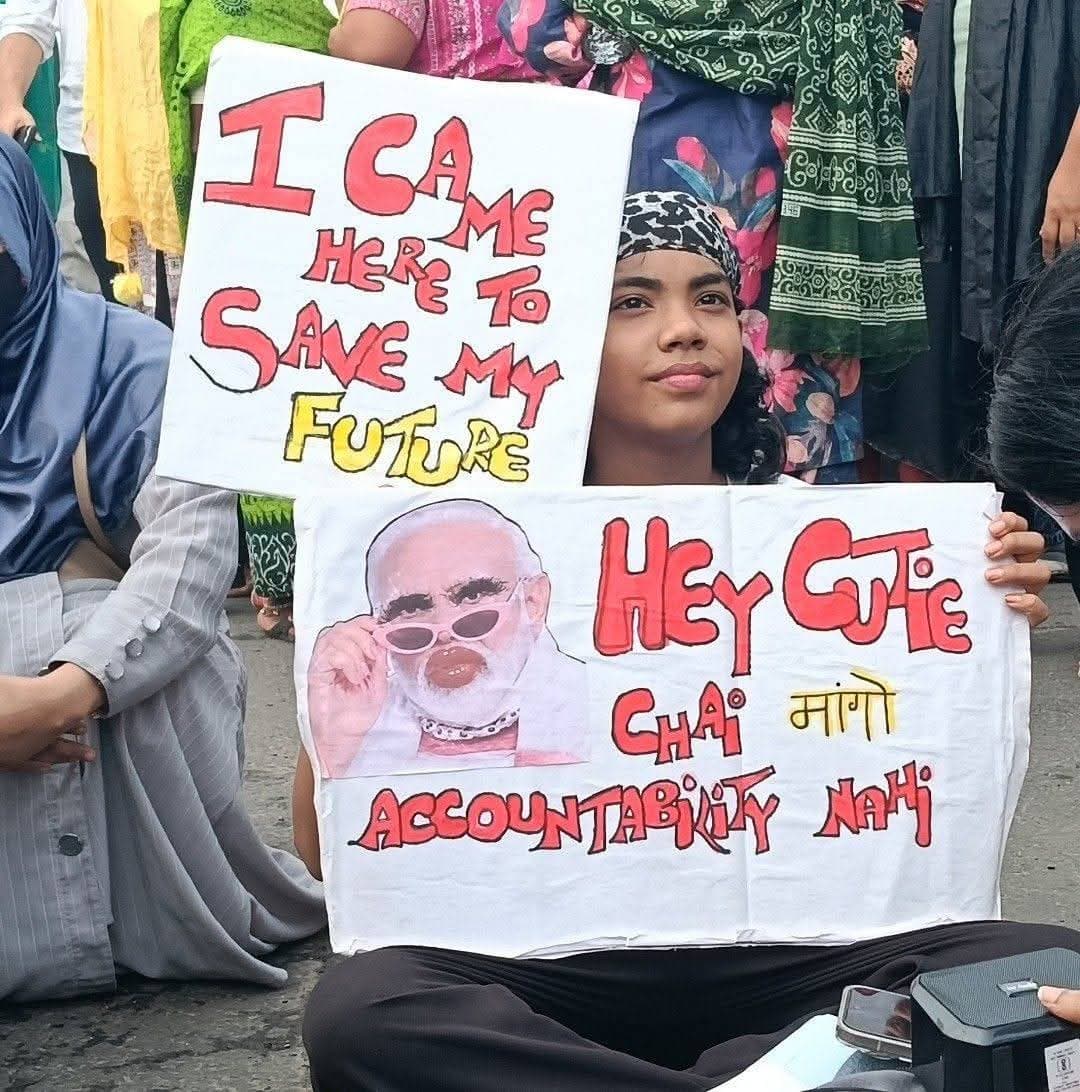 I CAME
HERE TO
SAVE MY
FUTURE
HEY CUTiE
CHAi मांगो
ACCOUNTABiliTY NAHi